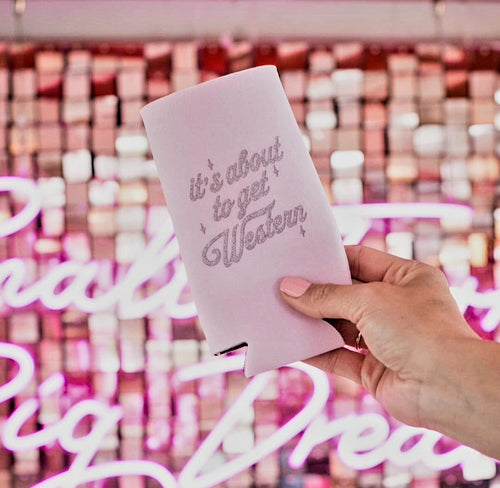 it's about
to get
Western
Big Dream